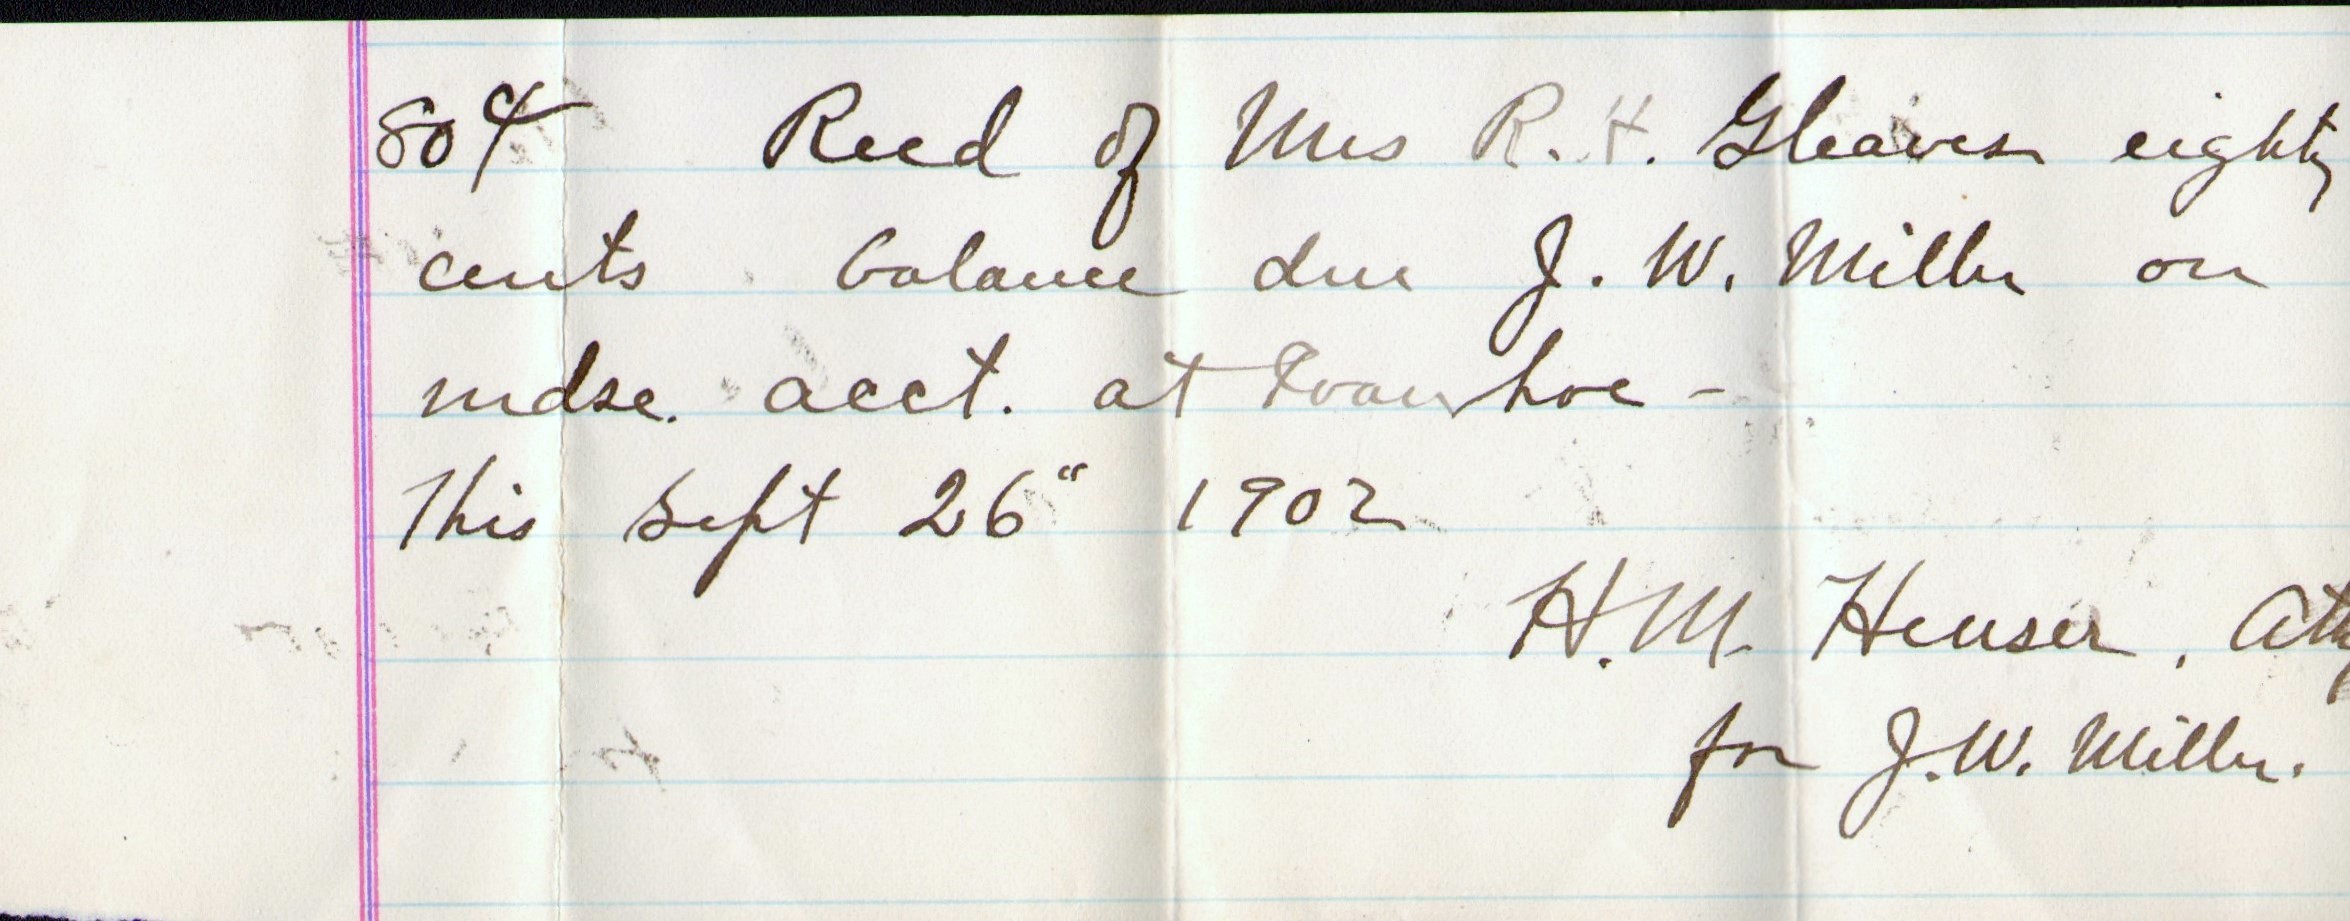 80¢ Recd of Mrs R. H. Gleaves eighty
cents balance due J. W. Miller on
mdse. acct. at Ivanhoe -
This Sept 26" 1902
H. M. Heuser, Atty
for J. W. Miller.